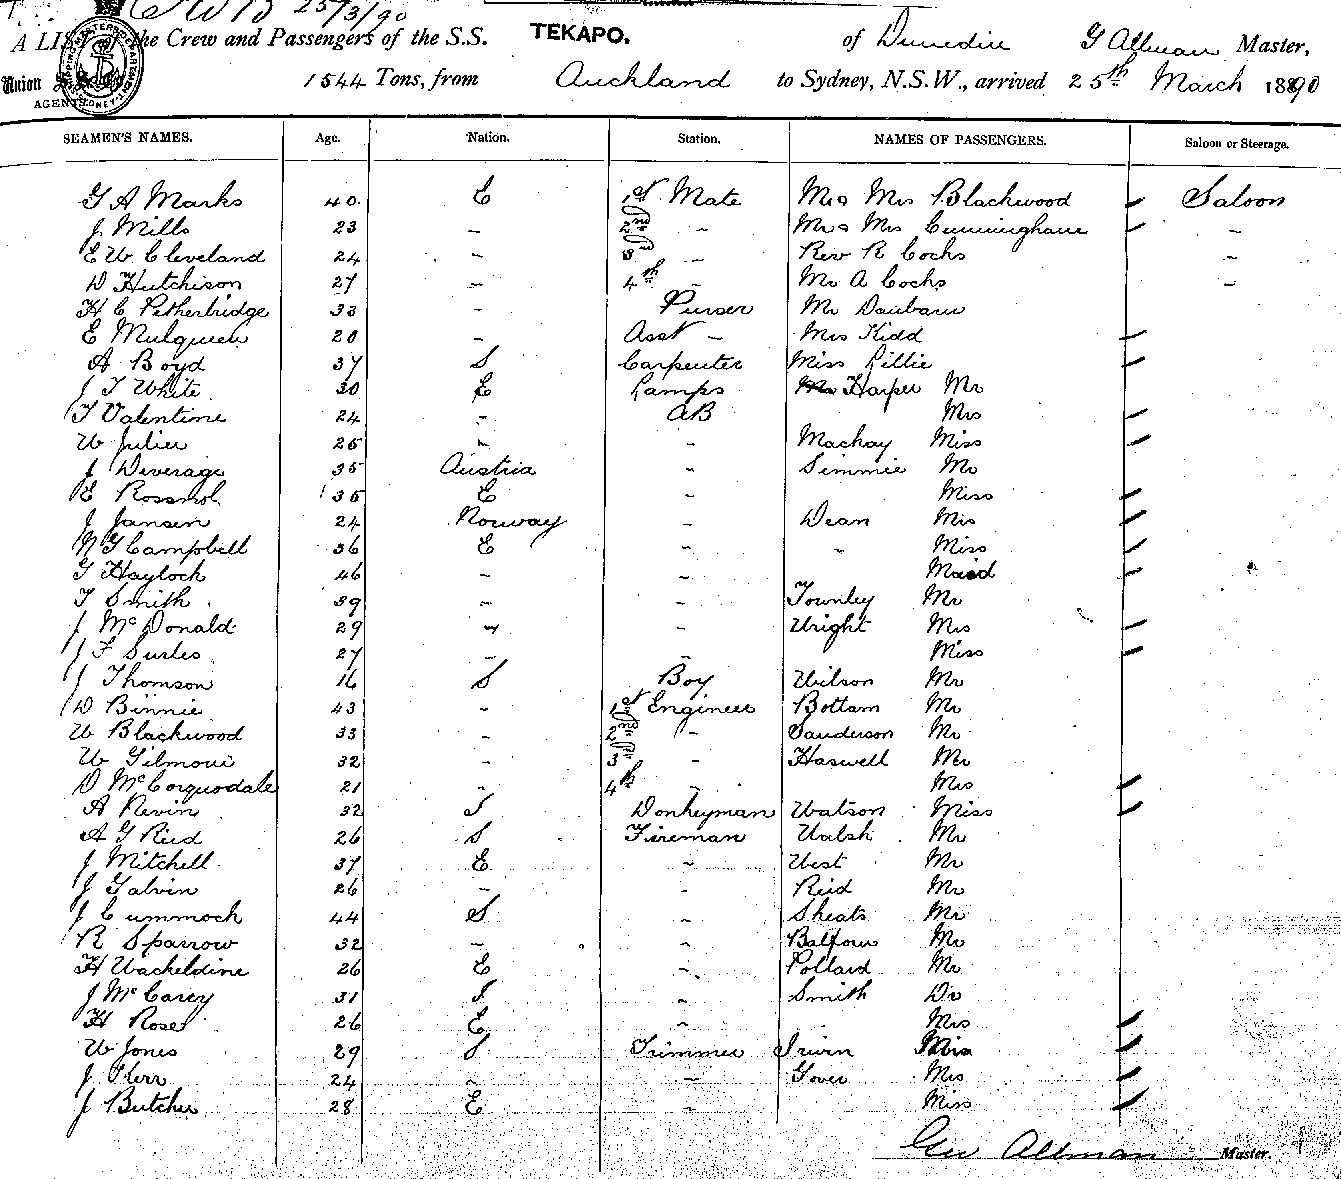 25/3/90
A LIST of the Crew and Passengers of the S.S. TEKAPO. of Dunedin G Allman Master,
Union AGENTS 1544 Tons, from Auckland to Sydney, N.S.W., arrived 25th March 1890
SEAMEN'S NAMES. Age. Nation. Station. NAMES OF PASSENGERS. Saloon or Steerage.
G A Marks 40 E 1st Mate Mr & Mrs Blackwood Saloon
J Mills 23 - 2nd - Mr & Mrs Cunningham -
E W Cleveland 24 - 3rd - Rev R Cocks -
D Hutchison 27 - 4th - Mr A Cocks -
H C Petherbridge 33 - Purser Mr Daubarn
E Mulqueen 20 - Asst - Mrs Kidd
A Boyd 37 S Carpenter Miss Lillie
J T White 30 E Lamps Harper Mr
T Valentine 24 - AB Mrs
W Julier 25 - - Mackay Miss
J Deverage 35 Austria - Simmie Mr
E Rossmol 35 E - Miss
J Jansen 24 Norway - Dean Mrs
N G Campbell 36 E - - Miss
G Haylock 46 - - Maid
T Smith 39 - - Townley Mr
J McDonald 29 - - Wright Mrs
J F Surles 27 - - Miss
J Thomson 16 S Boy Wilson Mr
D Binnie 43 - 1st Engineer Bottam Mr
W Blackwood 33 - 2nd - Sanderson Mr
W Gilmour 32 - 3rd - Haswell Mr
D McCorquodale 21 - 4th - Mrs
A Nevin 32 I Donkeyman Watson Miss
A G Reid 26 S Fireman Walsh Mr
J Mitchell 37 E - West Mr
J Galvin 26 - - Reid Mr
J Cummock 44 S - Sheats Mr
R Sparrow 32 - - Balfour Mr
H Wackeldine 26 E - Pollard Mr
J McCarey 31 I - Smith Dr
H Rose 26 E - Mrs
W Jones 29 S Trimmer Irwin Miss
J Kerr 24 - - Gover Mrs
J Butcher 28 E - Miss
Geo Allman Master.